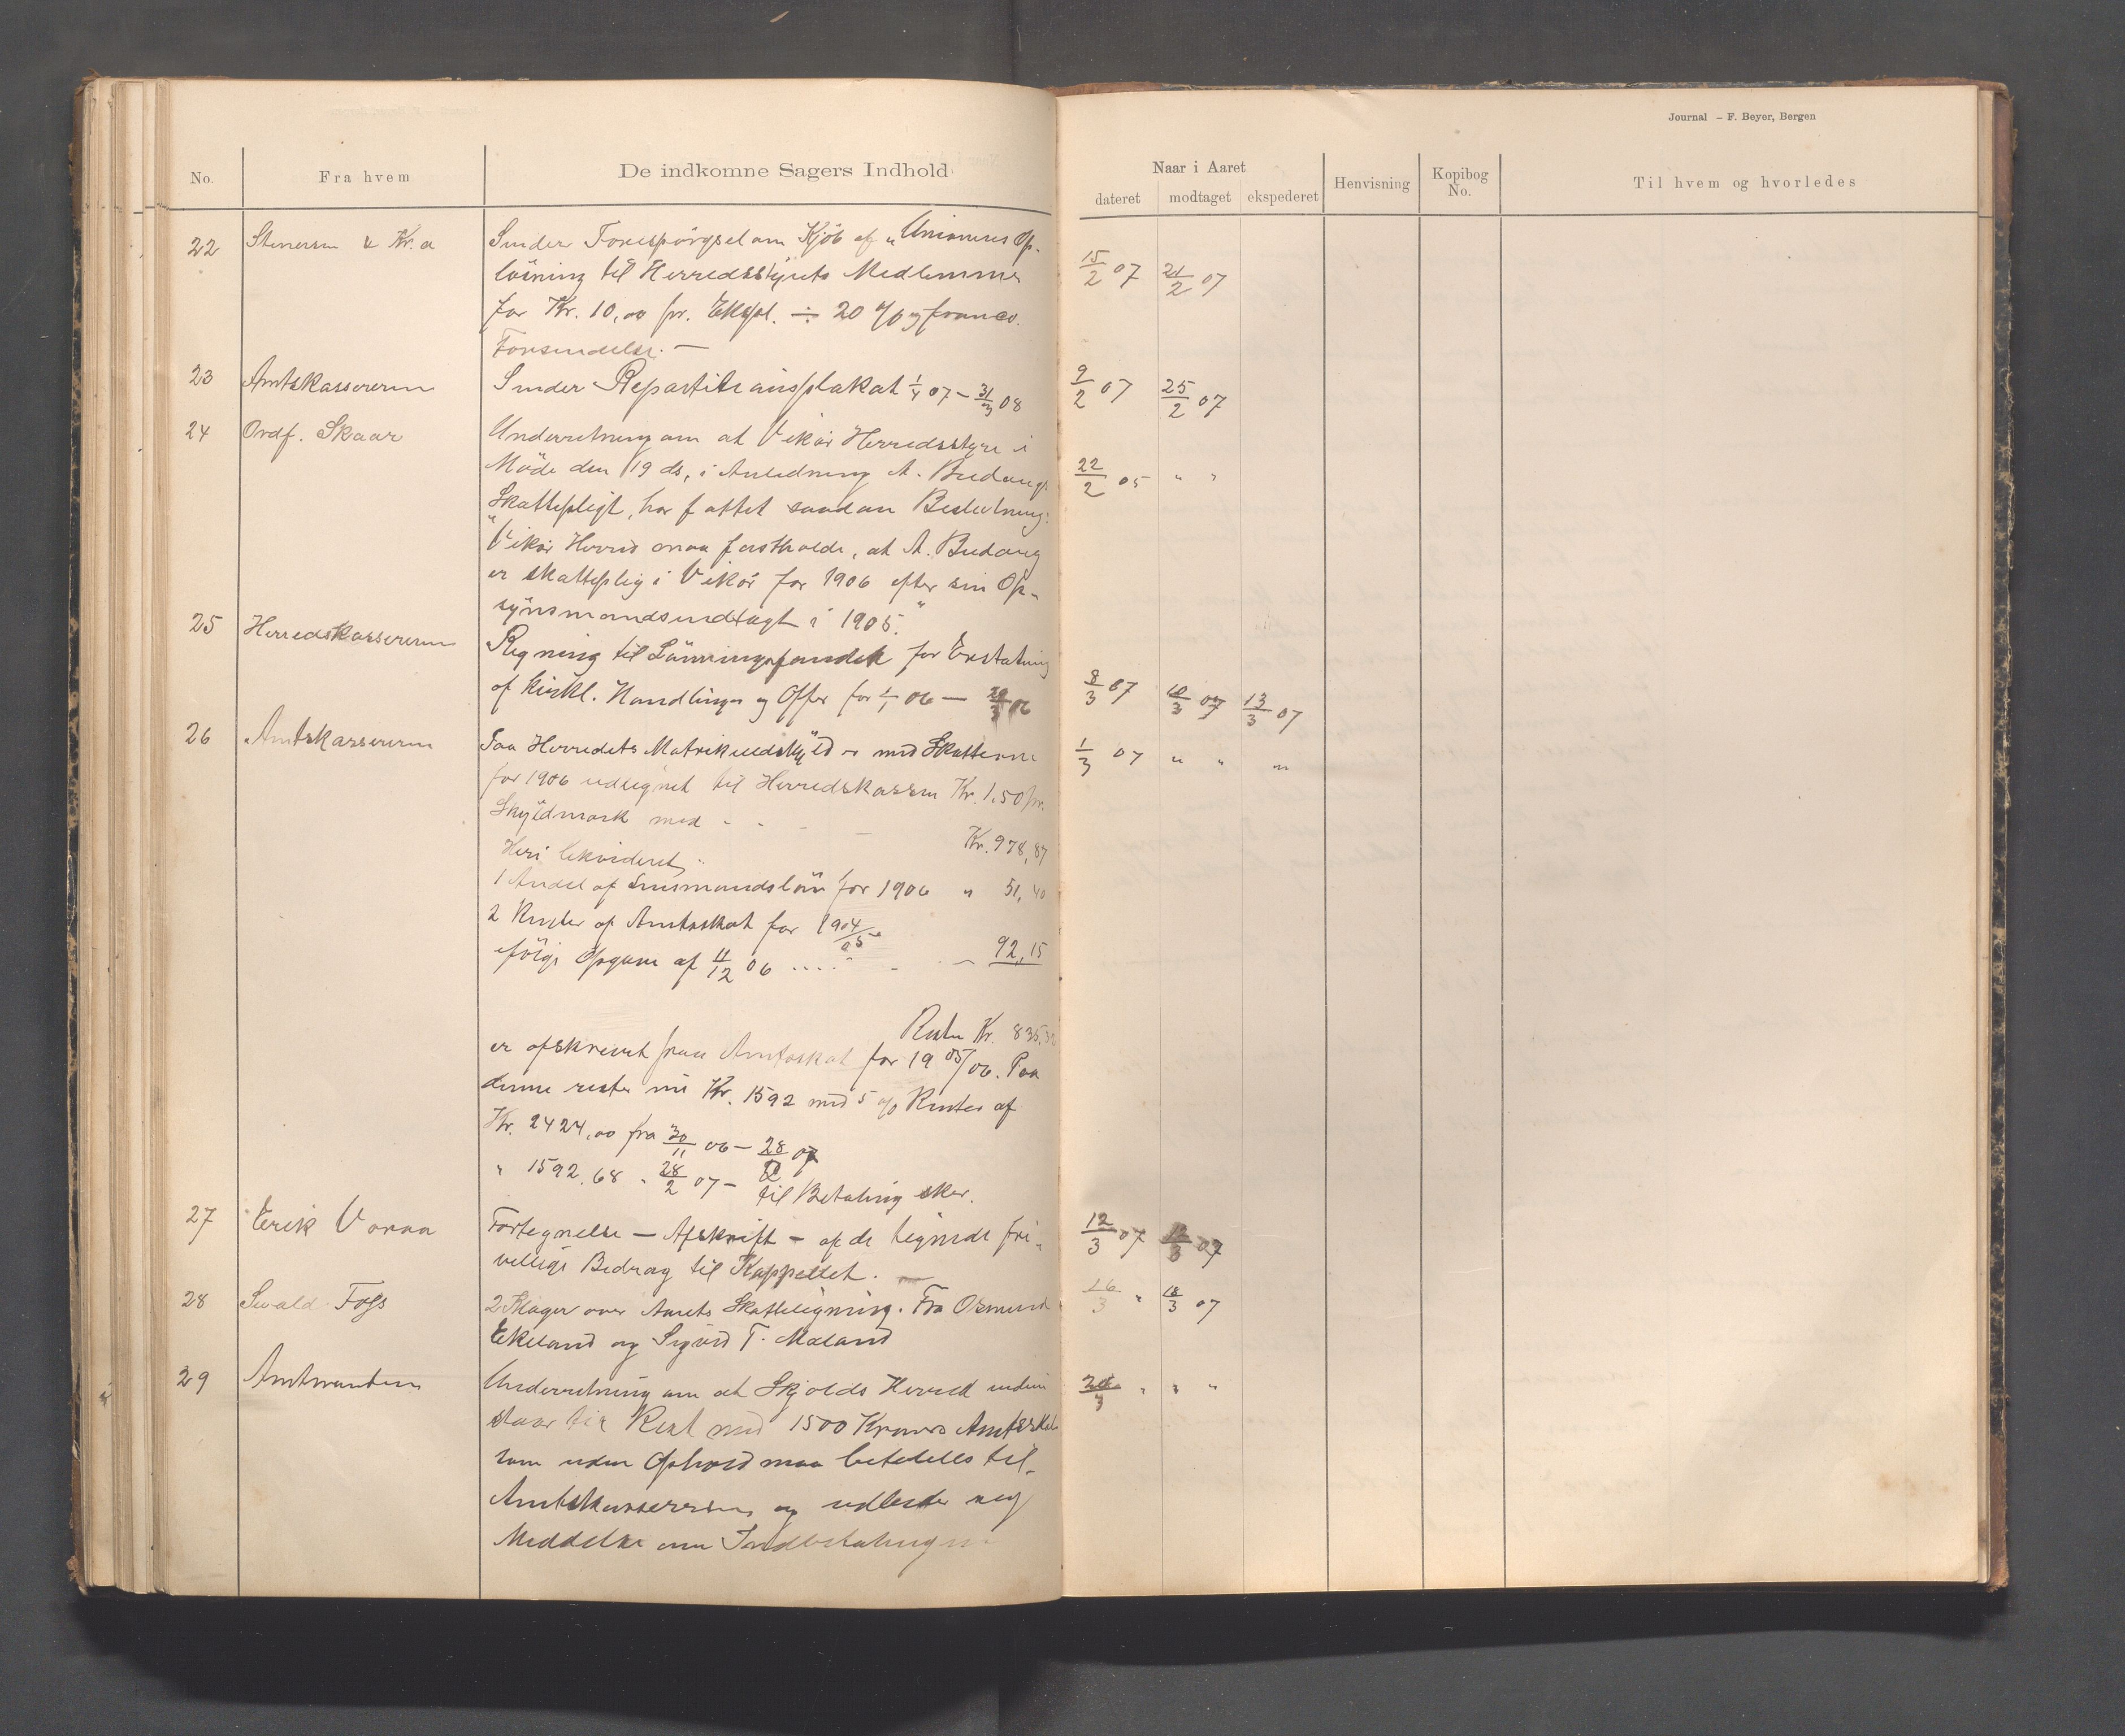 Journal – F. Beyer, Bergen
No. Fra hvem De indkomne Sagers Indhold
Naar i Aaret
dateret modtaget ekspederet Henvisning Kopibog No. Til hvem og hvorledes
22 Stenersen & Kr.a Sender Forespörgsel om Kjöb af „Unionens Op-
lösning til Herredsstyrets Medlemmer 15/2 07 21/2 07
for Kr. 10,00 pr. Ekspl. ÷ 20 % og franco.
Forsendelse. —
23 Amtskassereren Sender Repartitionsplakat 1/4 07 – 31/3 08 9/2 07 25/2 07
24 Ordf. Skaar Underretning om at Vikör Herredsstyre i
Möde den 19 ds, i Anledning A. 22/2 05 " "
Skattepligt, har fattet saadan Beslutning:
"Vikör Herred maa fastholde, at A.
er skatteplig i Vikör for 1906 efter sin Op-
synsmandsindtægt i 1905."
25 Herredskassereren Regning til Lönningsfondet for Erstatning
af kirkl. Handlinger og Offer for 1/1 06 — 06 8/3 07 10/3 07 13/3 07
26 Amtskassereren Paa Herredets Matrikuldskyld er med Skatterne 1/3 07 " " "
for 1906 udlignet til Herredskassen Kr. 1.50 pr.
Skyldmark med - - - - Kr. 978,87
Heri likvideret
1 Andel af Lensmandslön for 1906 " 51,40
2 Renter af Amtsskat for 1904/05
ifölge Opgave af 11/12 06 .... - - 92,15
Rester Kr. 835,32
er afskrevet paa Amtsskat for 1905/06. Paa
denne rester nu Kr. 1592 med 5 % Renter af
Kr. 2424,00 fra 30/11 06 – 28/2 07
" 1592.68 " 28/2 07 – til Betaling sker.
27 Erik Fortegnelse – Afskrift – af de tegnede fri- 12/3 07 12/3 07
villige Bidrag til Kappellet. —
28 2 Klager over Aarets Skatteligning. Fra Osmund 16/3 " 18/3 07
Ekeland og Sigurd T. Mæland
29 Amtmanden Underretning om at Skjolds Herred endnu " " "
staar til Rest med 1500 Kroners Amtsskat
som uden Ophold maa betales til
Amtskassereren og udbeder sig
Meddelse om Indbetalingen